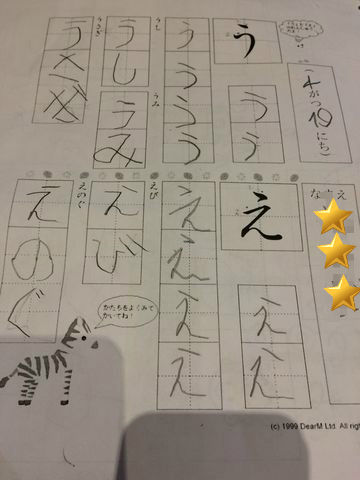 (4がつ10にち)
う
う
う
う
う
う
う
うし
うし
うみ
うみ
うさぎ
うさぎ
なまえ
え
え
え
え
え
え
え
えび
えび
えのぐ
えのぐ
かたちをよくみて
かいてね!
(c) 1999 DearM Ltd. All